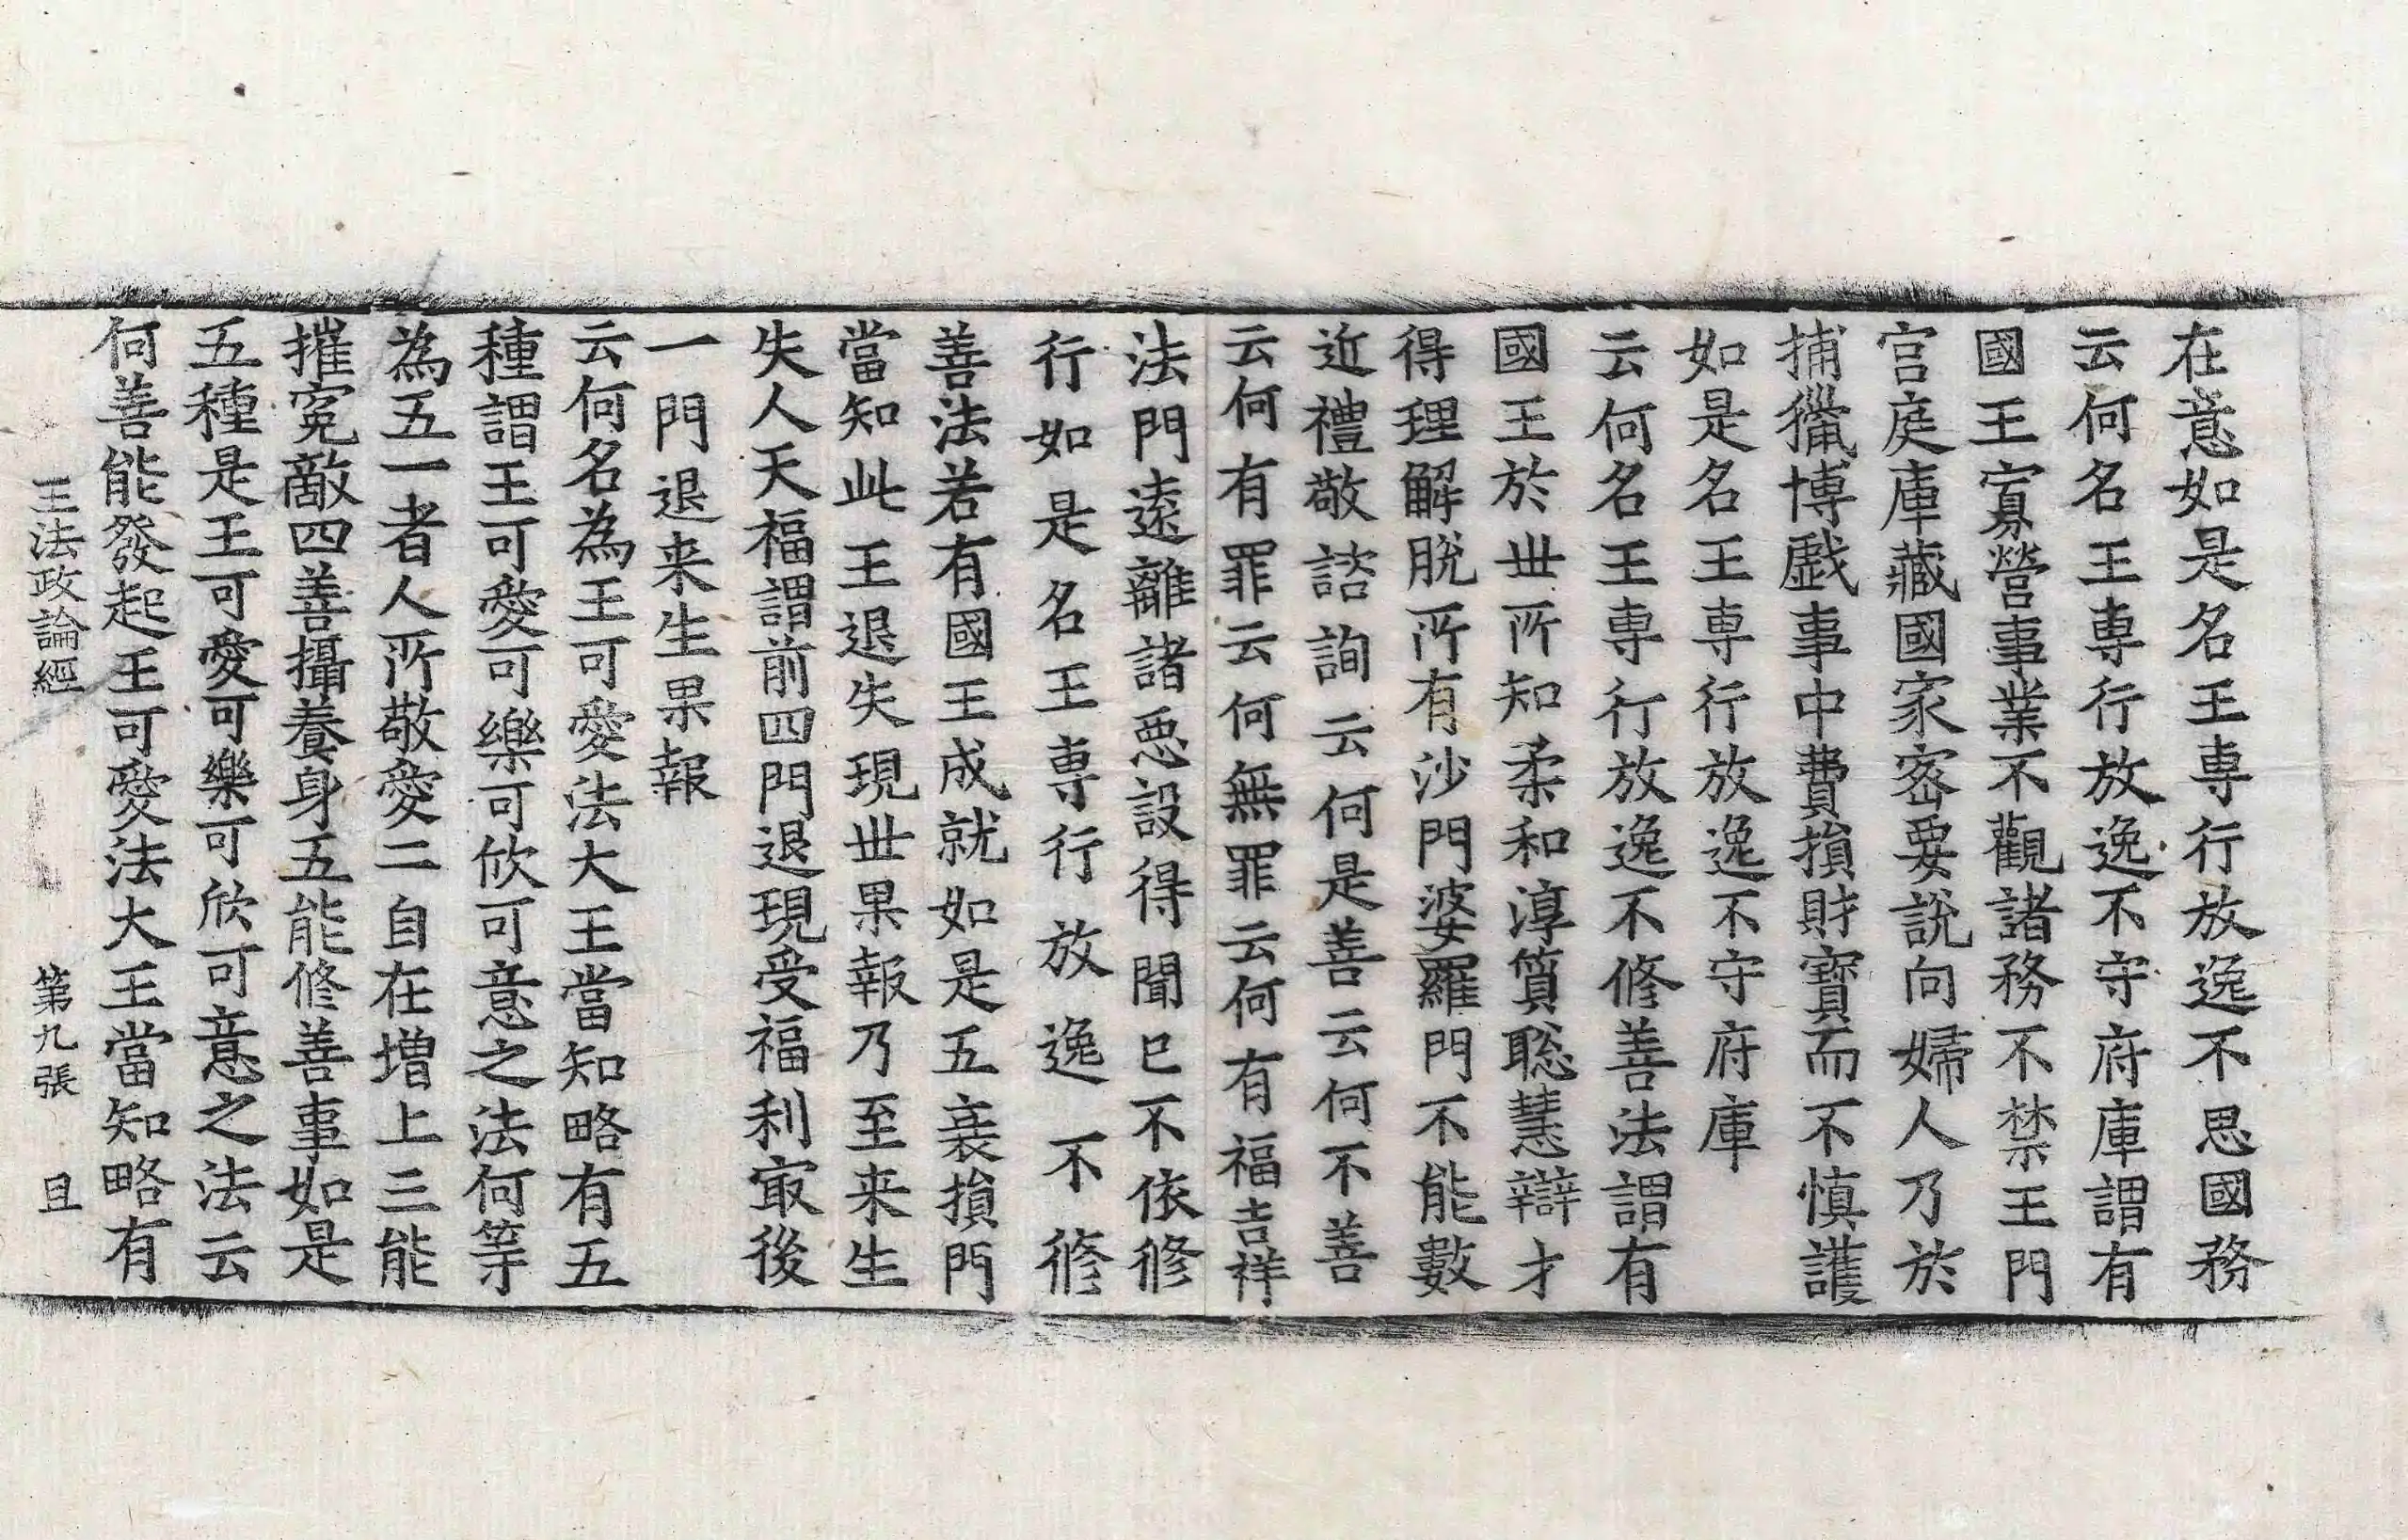 在意如是名王專行放逸不思國務
云何名王專行放逸不守府庫謂有
國王寡營事業不觀諸務不禁王門
宮庭庫藏國家密要說向婦人乃於
捕獵博戱事中費損財寶而不慎護
如是名王專行放逸不守府庫
云何名王專行放逸不修善法謂有
國王於世所知柔和淳質聦慧辯才
得理解脫所有沙門婆羅門不能數
近禮敬諮詢云何是善云何不善
云何有罪云何無罪云何有福吉祥
法門遠離諸惡設得聞已不依修
行如是名王專行放逸不修
善法若有國王成就如是五衰損門
當知此王退失現世果報乃至来生
失人天福謂前四門退現受福利㝡後
一門退来生果報
云何名為王可愛法大王當知略有五
種謂王可愛可樂可欣可意之法何等
為五一者人所敬愛二自在增上三能
摧寃敵四善攝養身五能修善事如是
五種是王可愛可樂可欣可意之法云
何善能發起王可愛法大王當知略有
王法政論經 第九張 且